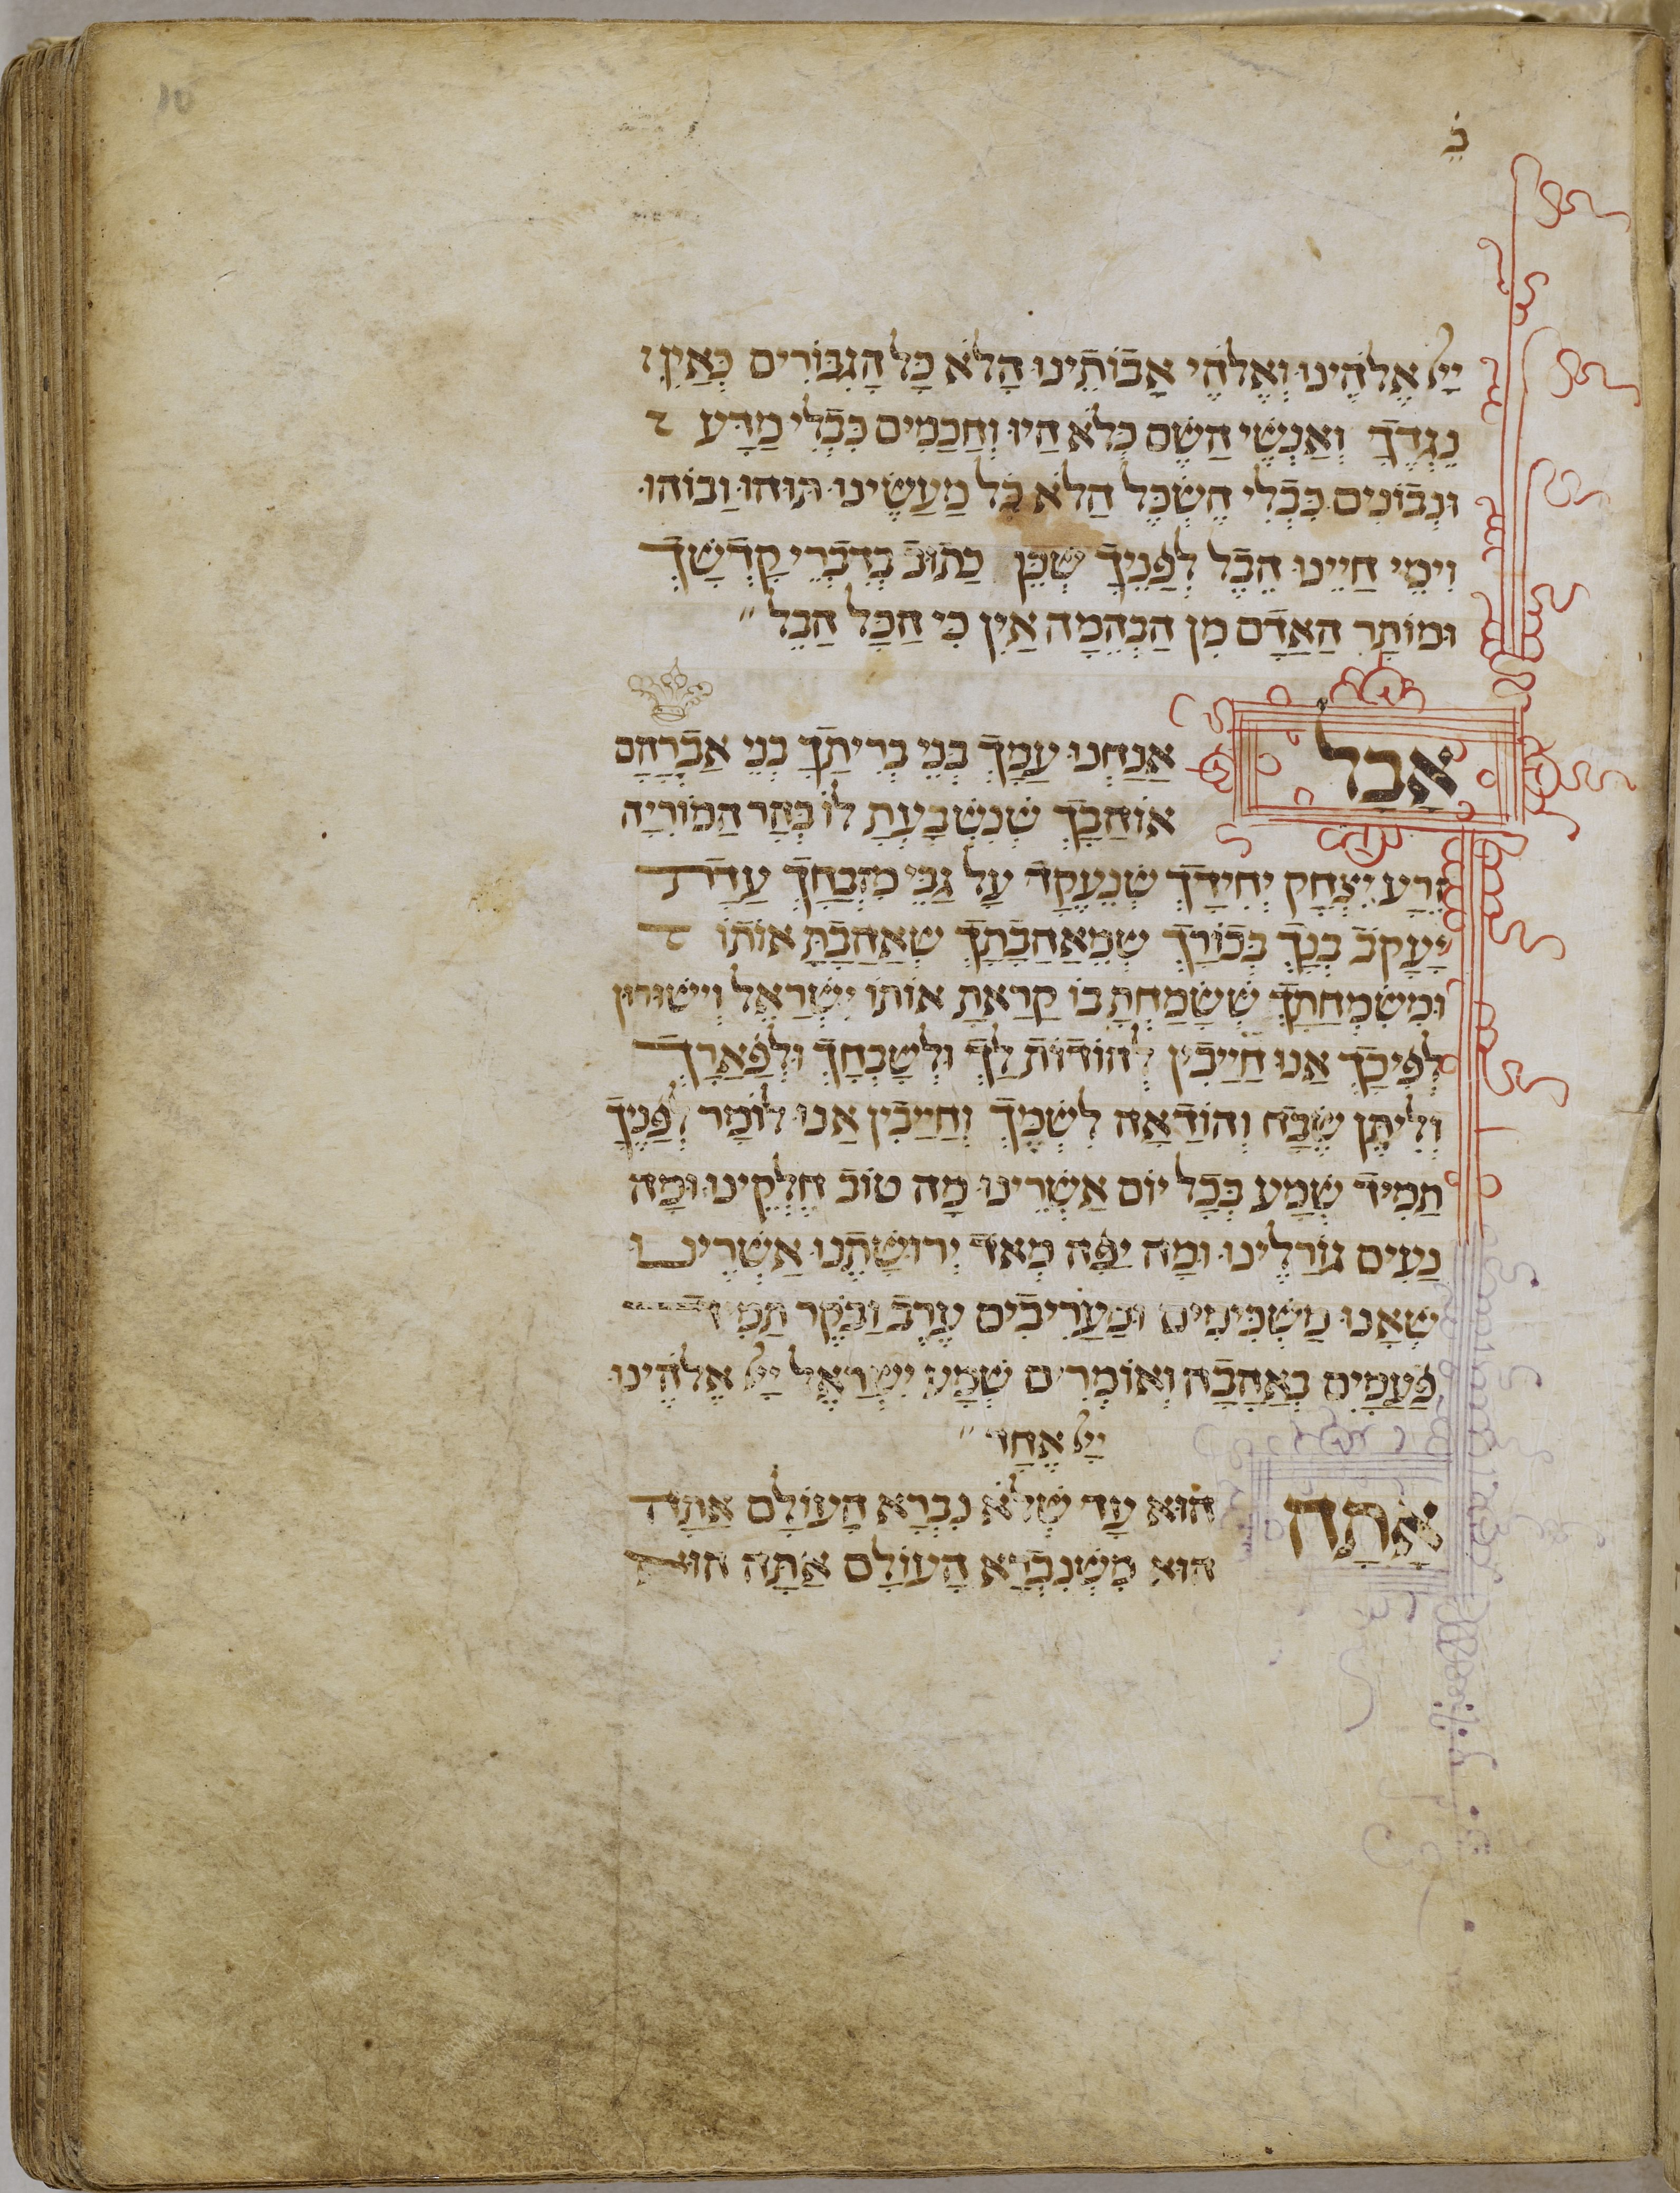 10
ב
יְיָ אֱלֹהֵינוּ וֵאלֹהֵי אֲבוֹתֵינוּ הֲלֹא כָּל הַגִּבּוֹרִים כְּאַיִן
נֶגְדֶּךָ וְאַנְשֵׁי הַשֵּׁם כְּלֹא הָיוּ וַחֲכָמִים כִּבְלִי מַדָּע
וּנְבוֹנִים כִּבְלִי הֶשְׂכֵּל הֲלֹא כָל מַעֲשֵׂינוּ תּוֹהוּ וָבוֹהוּ
וִימֵי חַיֵּינוּ הֶבֶל לְפָנֶיךָ שֶׁכֵּן כָּתוּב בְּדִבְרֵי קָדְשֶׁךָ
וּמוֹתַר הָאָדָם מִן הַבְּהֵמָה אַיִן כִּי הַכֹּל הָבֶל
אֲבָל אֲנַחְנוּ עַמְּךָ בְּנֵי בְרִיתֶךָ בְּנֵי אַבְרָהָם
אוֹהַבְךָ שֶׁנִּשְׁבַּעְתָּ לוֹ בְּהַר הַמּוֹרִיָּה
זֶרַע יִצְחָק יְחִידֶךָ שֶׁנֶּעֱקַד עַל גַּבֵּי מִזְבְּחֶךָ עֲדַת
יַעֲקֹב בִּנְךָ בְּכוֹרֶךָ שֶׁמֵּאַהֲבָתְךָ שֶׁאָהַבְתָּ אוֹתוֹ
וּמִשִּׂמְחָתְךָ שֶׁשָּׂמַחְתָּ בּוֹ קָרָאתָ אוֹתוֹ יִשְׂרָאֵל וִישׁוּרוּן
לְפִיכָךְ אָנוּ חַיָּיבִין לְהוֹדוֹת לָךְ וּלְשַׁבְּחָךְ וּלְפָאֲרָךְ
וְלִיתֵּן שֶׁבַח וְהוֹדָאָה לִשְׁמֶךָ וְחַיָּיבִין אָנוּ לוֹמַר לְפָנֶיךָ
תָּמִיד שְׁמַע בְּכָל יוֹם אַשְׁרֵינוּ מַה טּוֹב חֶלְקֵינוּ וּמַה
נָּעִים גּוֹרָלֵינוּ וּמַה יָּפָה מְאֹד יְרוּשָּׁתֵנוּ אַשְׁרֵינוּ
שֶׁאָנוּ מַשְׁכִּימִים וּמַעֲרִיבִים עֶרֶב וָבֹקֶר תָּמִיד
פַּעֲמַיִם בְּאַהֲבָה וְאוֹמְרִים שְׁמַע יִשְׂרָאֵל יְיָ אֱלֹהֵינוּ
יְיָ אֶחָד
אַתָּה הוּא עַד שֶׁלֹּא נִבְרָא הָעוֹלָם אַתָּה
הוּא מִשֶּׁנִּבְרָא הָעוֹלָם אַתָּה הוּא